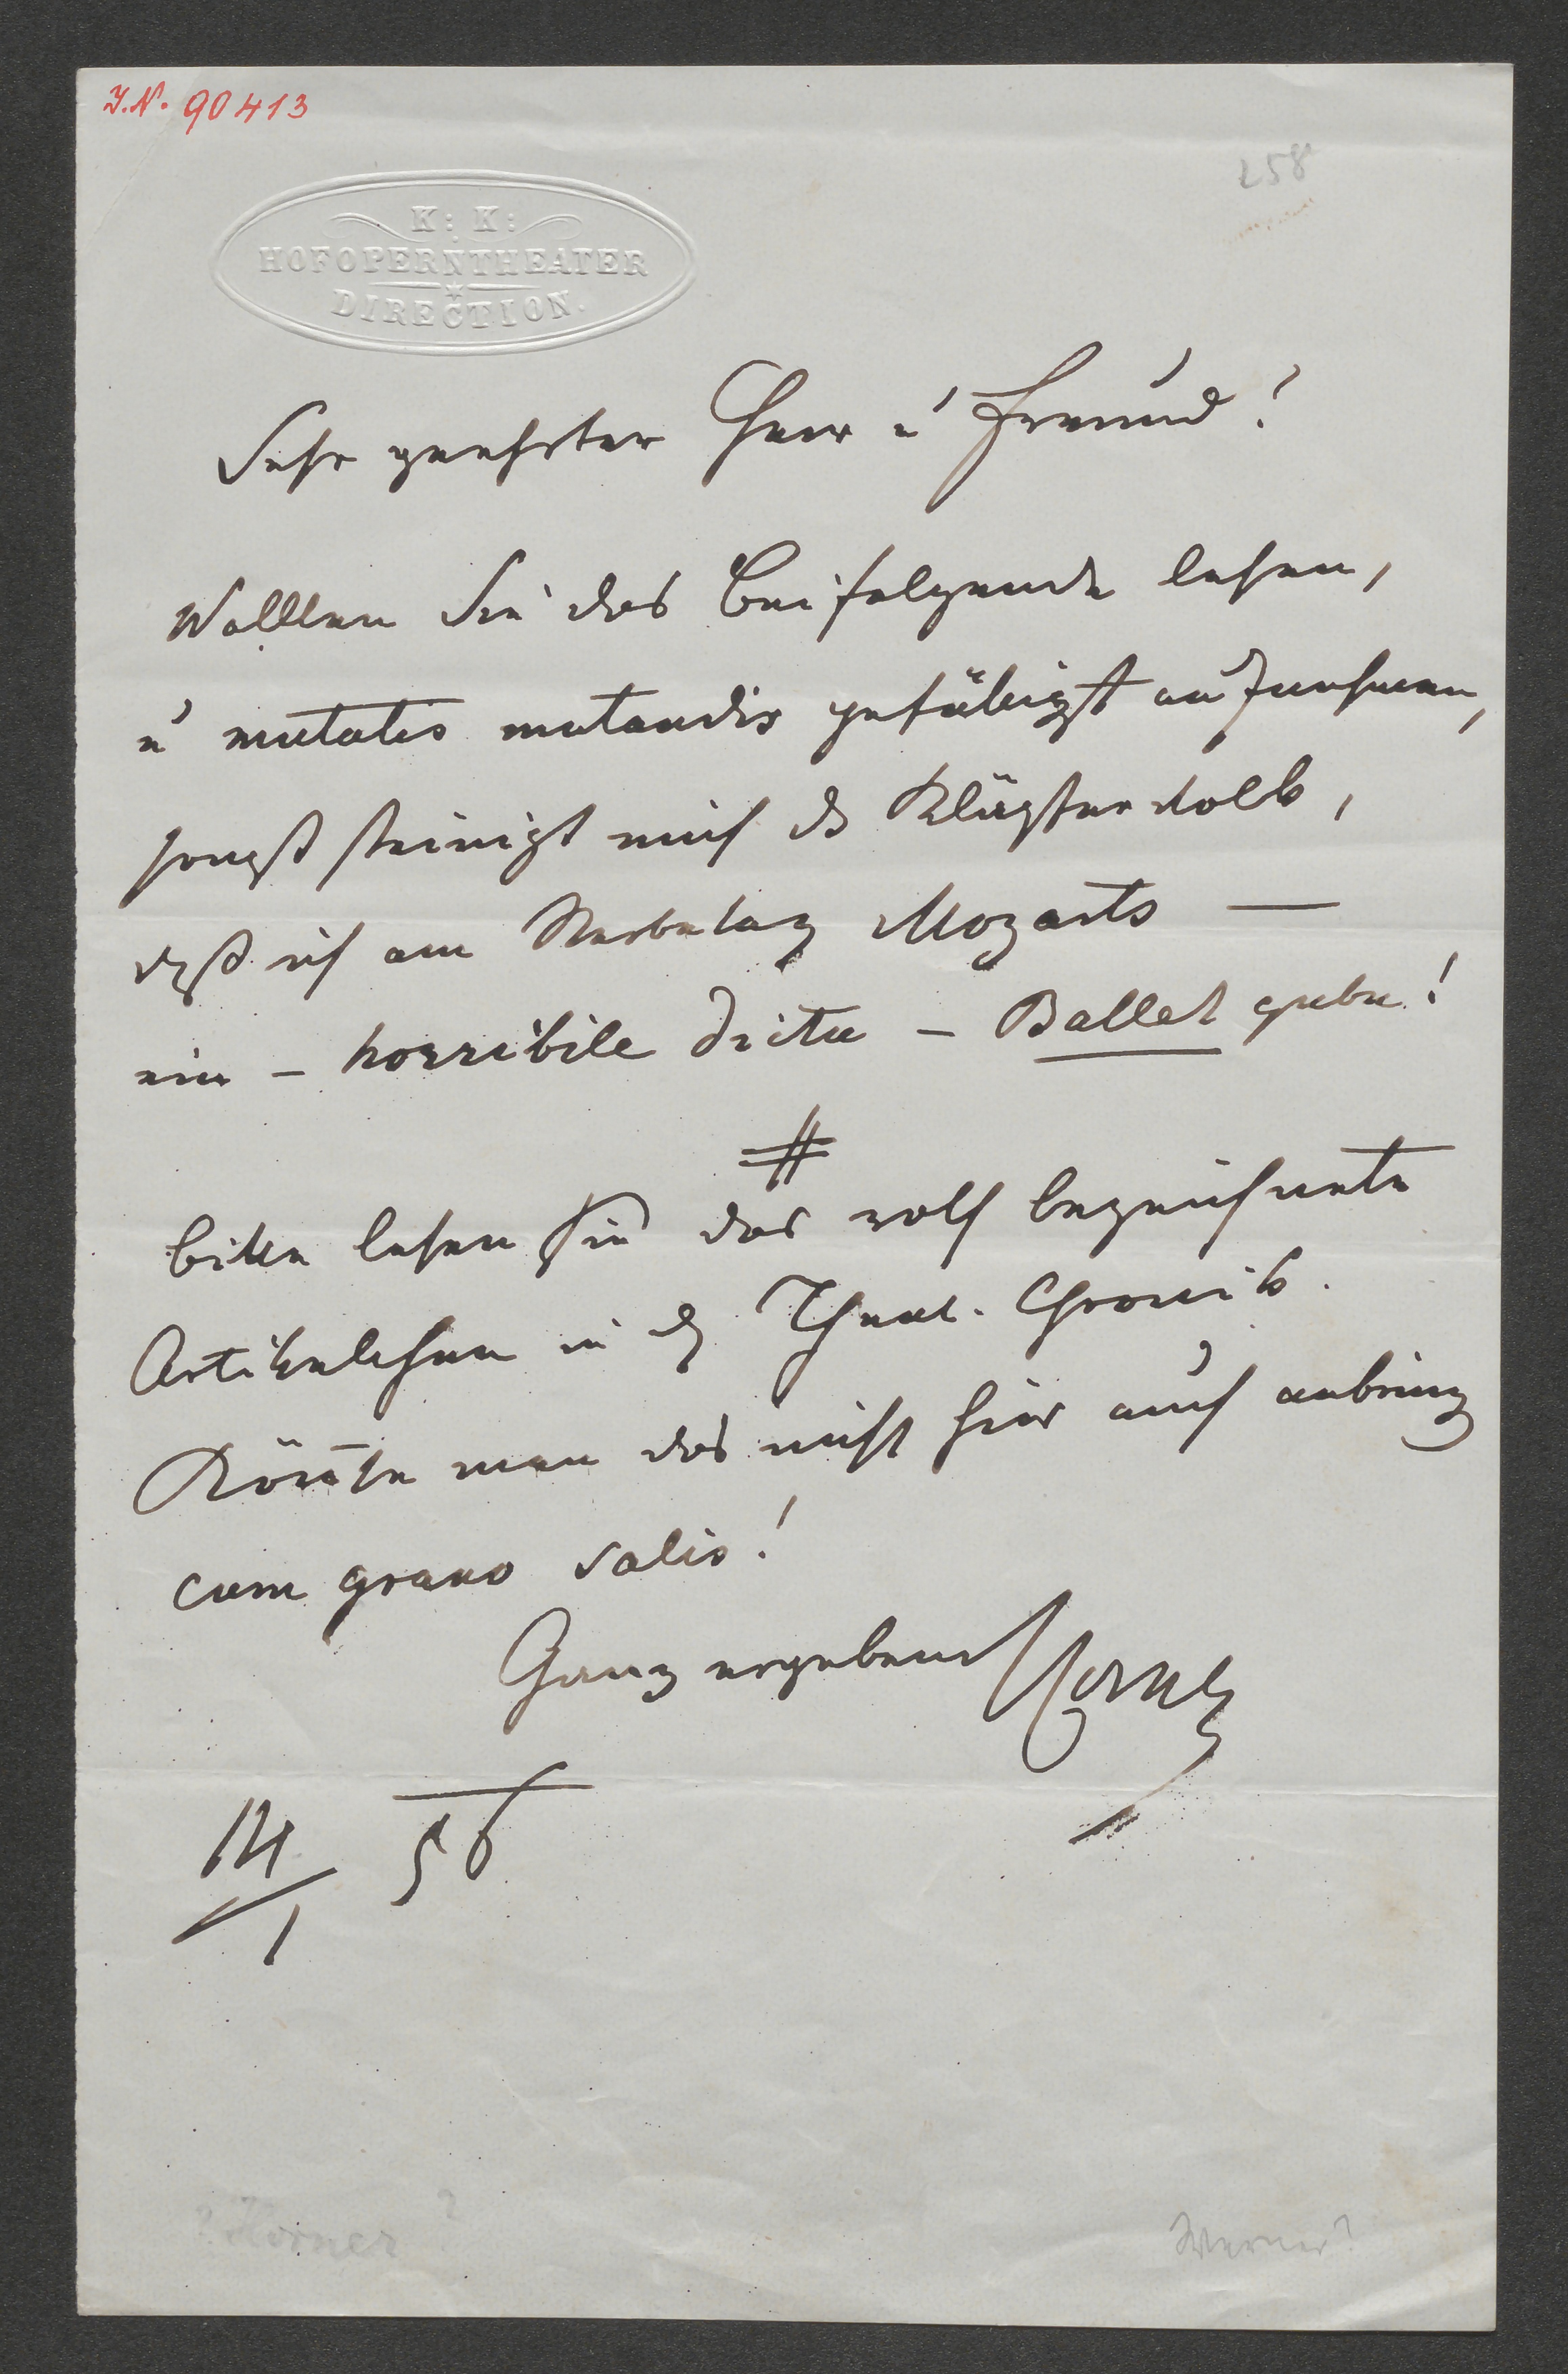 J.N. 90413
258
K: K:
HOFOPERNTHEATER
DIRECTION.
Sehr geehrter Herr u Freund!
Wolllen Sie das Beifolgende lesen,
u mutatis mutandis gefälligst aufnehmen,
sonst steinigt mich das Volk,
daß ich am Sterbetag Mozarts —
ein – horribile dictu – Ballet gebe!
#
bitte lesen Sie das roth bezeichnete
Artikelchen in der Theat. Chronik.
Könnte man das nicht hier auch anbringen
cum grano salis!
Ganz ergebenst
14/1 56
? Horner ?
Werner?